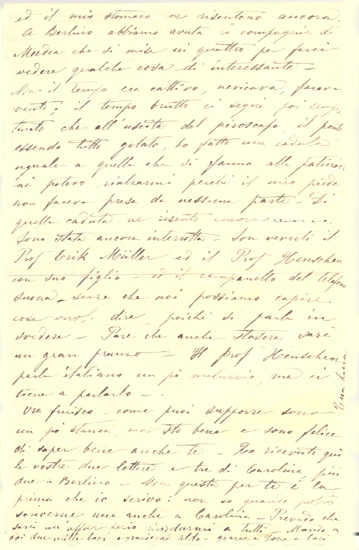 ed il mio stomaco se ne risentono ancora.
A Berlino abbiamo avuto la compagnia di
che si mise in quattro per farci
vedere qualche cosa di interessante –
Ma il tempo era cattivo, nevicava, faceva
vento; il tempo brutto ci seguì poi
tanto che all'uscita del piroscafo, il ponte
essendo tutto gelato, ho fatto una caduta
uguale a quelle che si fanno alle
nè potevo rialzarmi perchè il mio piede
non faceva presa da nessuna parte – Di
quella caduta ne risento ancora
Sono stata ancora interrotta – Son venuti il
Prof Erik Müller ed il Prof Henschen
con suo figlio – ed il campanello del telefono
suona, senza che noi possiamo capire
cosa dire, poichè si parla in
svedese – Pare che anche stasera sarà
un gran pranzo – Il prof Henschen
parla italiano un pò, ma ci
tiene a parlarlo –
Ora finisco – come puoi supporre sono
un pò stanca, ma sto bene e sono felice
di saper bene anche te – Ho ricevuto qui
le vostre due lettere e tre di Carolina più
due a Berlino – questa per te è la
prima che io scrivo: non so quando potrò
scriverne una anche a Carolina – Prevedo che
sarà un affare serio a tutti – Mario a
voi due mille baci